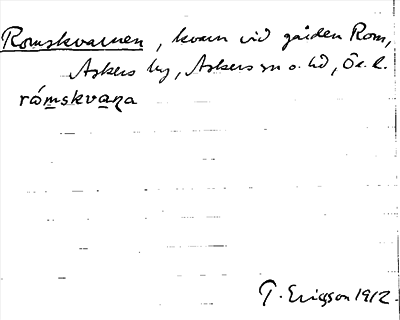 Romskvarnen, kvarn vid gården Rom,
Askers by, Askers sn o. hd, Ör. l.
rómskvaṇa
T. Ericsson 1912.